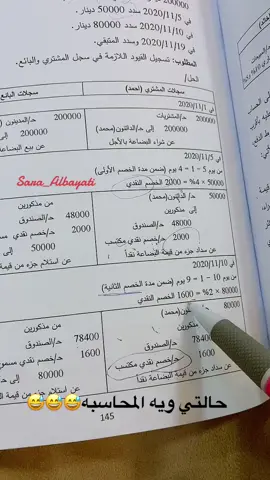 في 2020/11/5 سدد 50000 دينار.
في 2020/11/10 سدد 80000 دينار.
في 2020/11/19 وسدد المتبقي.
المطلوب: تسجيل القيود اللازمة في سجل المشتري والبائع.
الحل/
سجلات المشتري (احمد)
سجلات البائع
في 2020/11/1
200000 ح/المشتريات
200000 إلى ح/الدائنون(محمد)
عن شراء البضاعة بالأجل
200000 ح/المدينون
200000
عن بيع البضاعة
في 2020/11/5
من يوم 5 - 1 = 4 يوم (ضمن مدة الخصم الأولى)
50000 × 4% = 2000 الخصم النقدي
Sara_Albayati
50000 ح/ الدائنون(محمد)
إلى مذكورين
48000 ح/الصندوق
2000 ح/خصم نقدي مكتسب
عن سداد جزء من قيمة البضاعة نقداً
من مذكورين
48000 ح/الصندوق
2000 ح/خصم نقدي
50000 إلى
عن استلام جزء من قيمة
في 2020/11/10
من يوم 10 - 1 = 9 يوم (ضمن مدة الخصم الثانية)
80000 × 2% = 1600 الخصم النقدي
80000
مذكورين
78400 ح/
1600 ح/خصم نقدي مكتسب
عن سداد جزء من قيمة البضاعة نقداً
من مذكورين
78400 ح/الصندوق
1600 ح/خصم نقدي
80000 إلى
145
حالتي ويه المحاسبه😅😅😅😅